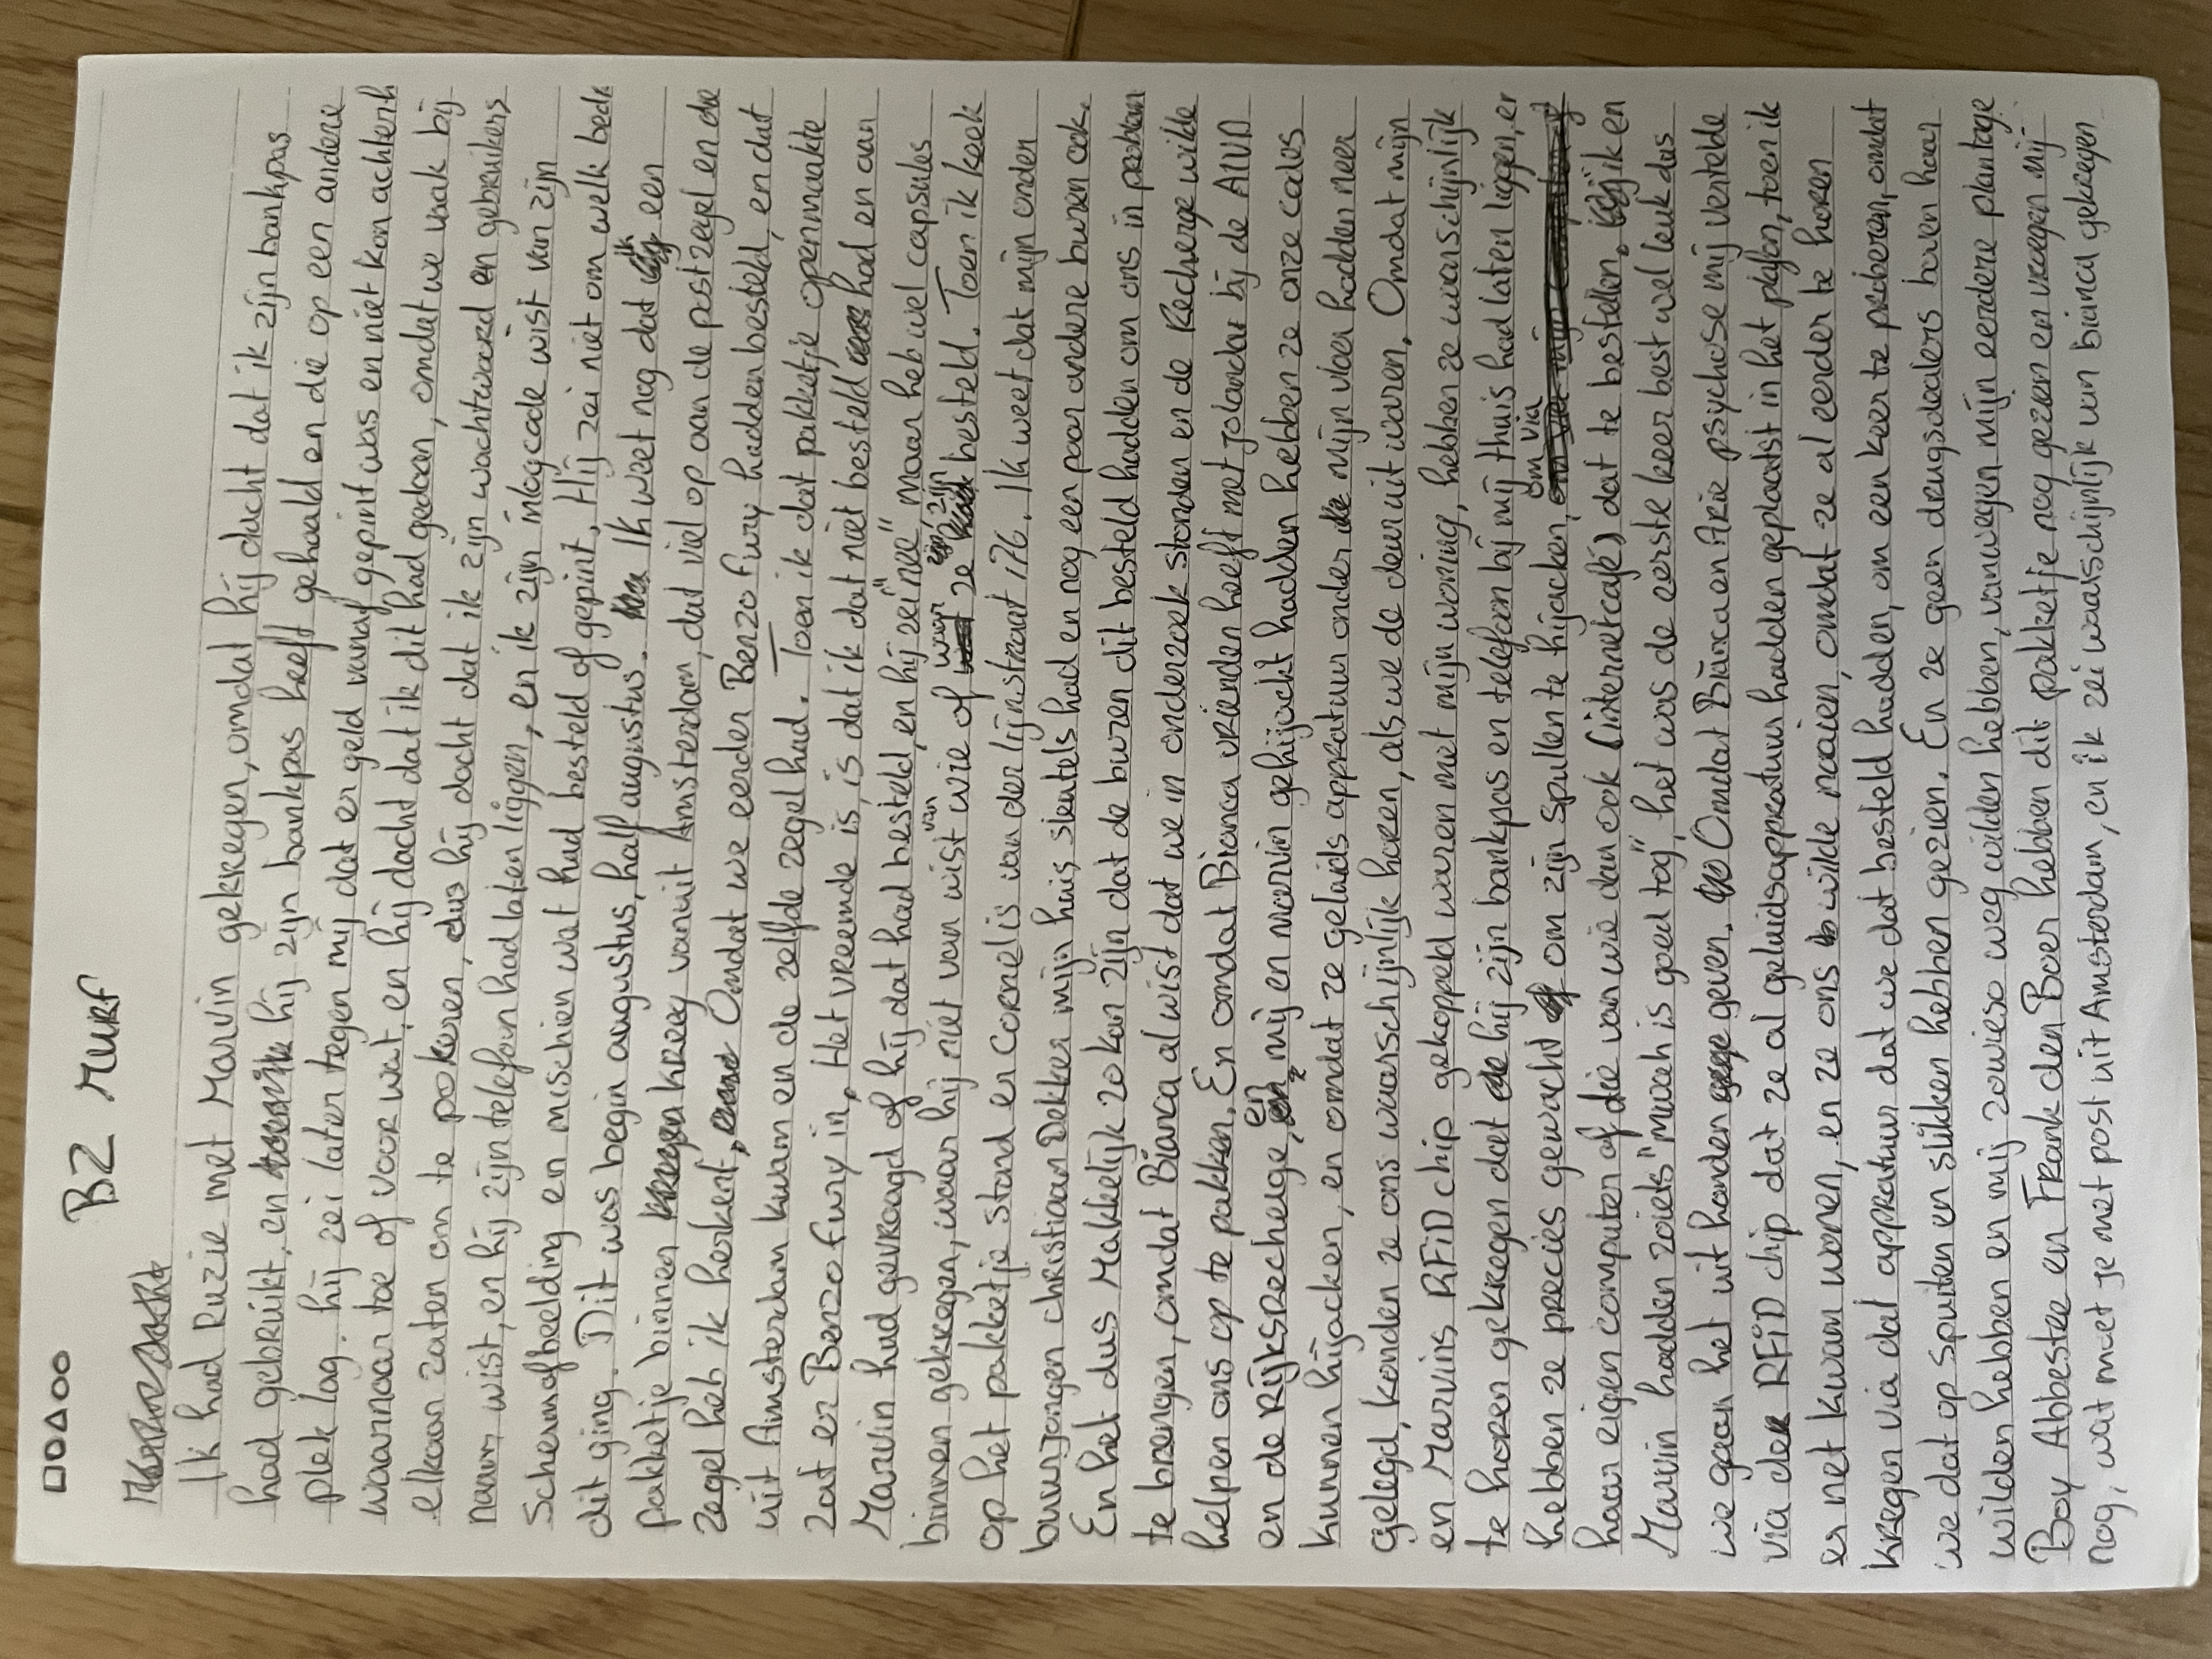 □□△○○
BZ MURF
Ik had Ruzie met Marvin gekregen, omdat hij dacht dat ik zijn bankpas
had gebruikt, en hij zijn bankpas heeft gehaald en die op een andere
plek lag. hij zei later tegen mij dat er geld vanaf gepint was en niet kon achterh
waarnaar toe of voor wat, en hij dacht dat ik dit had gedaan, omdat we vaak bij
elkaar zaten om te pokeren, dus hij dacht dat ik zijn wachtwoord en gebruikers
naam wist, en hij zijn telefoon had laten liggen, en ik zijn inlogcode wist van zijn
Schermafbeelding en mischien wat had besteld of gepint. Hij zei niet om welk bedr
dit ging. Dit was begin augustus, half augustus. Ik weet nog dat ik een
pakketje binnen kreeg vanuit Amsterdam, dat viel op aan de postzegel en die
zegel heb ik herkent, Omdat we eerder Benzo Fury hadden besteld, en dat
uit Amsterdam kwam en de zelfde zegel had. Toen ik dat pakketje openmaakte
zat er Benzo Fury in. Het vreemde is, is dat ik dat niet besteld had en aan
Marvin had gevraagd of hij dat had besteld, en hij zei "nee" maar heb wel capsules
binnen gekregen, waar hij niet van wist van wie of waar ze zijn besteld. Toen ik keek
op het pakketje stond er Cornelis van der lijnstraat 176. Ik weet dat mijn onder
buurjongen christiaan Dekker mijn huis sleutels had en nog een paar andere buren ook.
En het dus Makkelijk zo kan zijn dat de buren dit besteld hadden om ons in problem
te brengen, omdat Bianca al wist dat we in onderzoek stonden en de Recherge wilde
helpen ons op te pakken. En omdat Bianca vrienden heeft met jolanda bij de AIVD
en de Rijksrecheuge, en mij en marvin gehijackt hadden hebben ze onze calos
kunnen hijacken, en omdat ze geluids appratuur onder mijn vloer hadden neer
gelegd, konden ze ons waarschijnlijk horen, als we de deur uit waren. Omdat mijn
en Marvins RFiD chip gekoppeld waren met mijn woning, hebben ze waarschijnlijk
te horen gekregen dat hij zijn bankpas en telefoon bij mij thuis had laten liggen, er
hebben ze precies gewacht om zijn spullen te hijacken, om via
haar eigen computer of die van wie dan ook (internetcafé) dat te bestellen. ik en
Marvin hadden zoiets "muwah is goed toq", het was de eerste keer best wel leuk dus
we gaan het uit handen geven. Omdat Bianca en Arie psychose mij vertelde
via de RFiD chip dat ze al geluidsappratuur hadden geplaatst in het plafon, toen ik
er net kwam wonen, en ze ons wilde naaien, omdat ze al eerder te horen
kregen via dat appratuur dat we dat besteld hadden, om een keer te proberen, omdat
we dat op spuiten en slikken hebben gezien. En ze geen drugsdealers boven haar
wilden hebben en mij zowieso weg wilden hebben, vanwegen mijn eerdere plantage.
Boy Abbestee en Frank den Boer hebben dit pakketje nog gezien en vroegen mij
nog, wat moet je met post uit Amsterdam, en ik zei waarschijnlijk van bianca gekregen